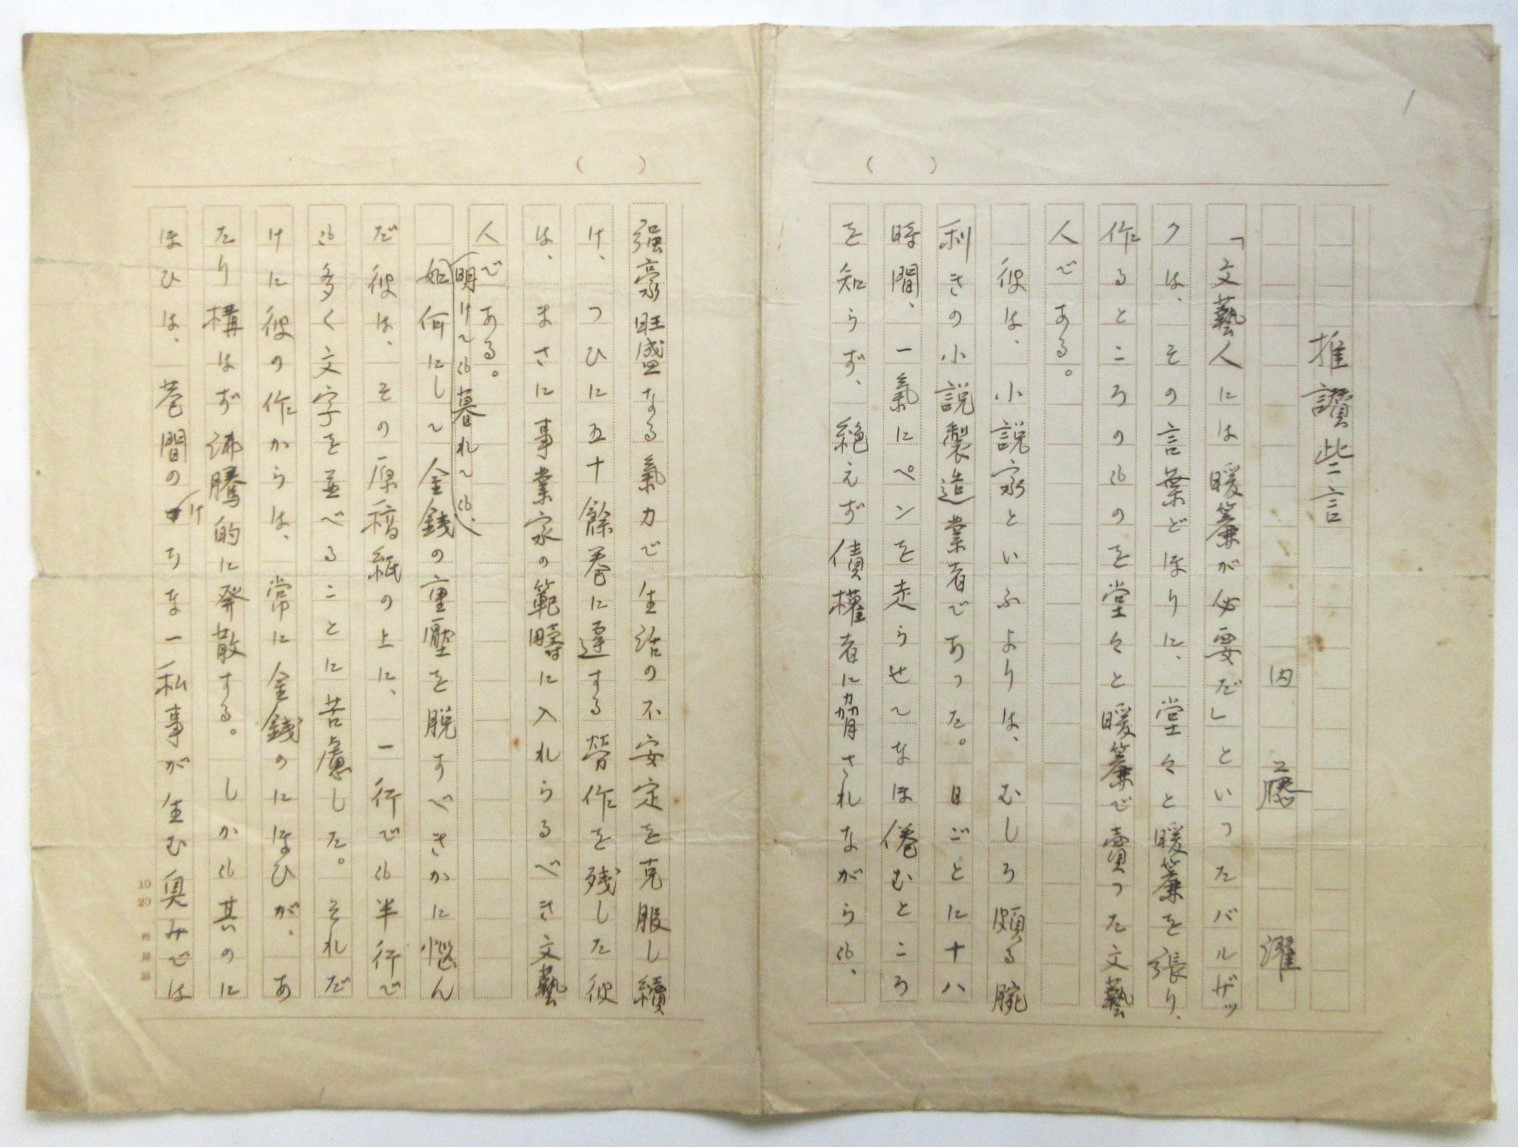 1
推讃些言
内藤濯
「文藝人には暖簾が必要だ」といつたバルザッ
クは、その言葉どほりに、堂々と暖簾を張り、
作るところのものを堂々と暖簾で賣つた文藝
人である。
彼は、小説家といふよりは、むしろ頗る腕
利きの小説製造業者であつた。日ごとに十八
時間、一氣にペンを走らせてなほ倦むところ
を知らず、絶えず債權者に脅されながらも、
强豪旺盛なる氣力で生活の不安定を克服し續
け、つひに五十餘巻に達する勞作を残した彼
は、まさに事業家の範疇に入れらるべき文藝
人である。
明けても暮れても、
如何にして金錢の重壓を脱すべきかに惱ん
だ彼は、その原稿紙の上に、一行でも半行で
も多く文字を並べることに苦慮した。それだ
けに彼の作からは、常に金錢のにほひが、あ
たり構はず沸騰的に発散する。しかも其のに
ほひは、巷間のけちな一私事が生む臭みでは
10 20